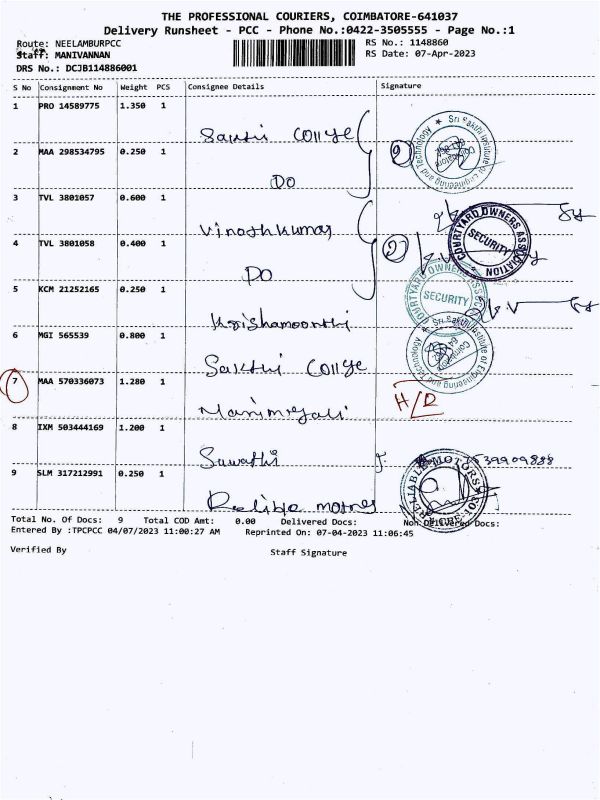 THE PROFESSIONAL COURIERS, COIMBATORE-641037
Delivery Runsheet - PCC - Phone No.:0422-3505555 - Page No.:1
Route: NEELAMBURPCC RS No.: 1148860
Staff: MANIVANNAN RS Date: 07-Apr-2023
DRS No.: DCJB114886001
S No Consignment No Weight PCS Consignee Details Signature
1 PRO 14589775 1.350 1
Sakthi College
2 MAA 298534795 0.250 1
DO
3 TVL 3801057 0.600 1
Vinothkumar
4 TVL 3801058 0.400 1
DO
5 KCM 21252165 0.250 1
Krishamoorthi
6 MGI 565539 0.800 1
Sakthi College
7 MAA 570336073 1.280 1
H/D
Manimegali
8 IXM 503444169 1.200 1
Suwathi
9 SLM 317212991 0.250 1
Relible motors
Sri Sakthi Institute of Engineering and Technology ★ Coimbatore
COURTYARD OWNERS ASSOCIATION ★ SECURITY
COURTYARD OWNERS SECURITY
Sri Sakthi Institute of Engineering and Technology ★ Coimbatore
RELIABLE MOTORS CBE
Total No. Of Docs: 9 Total COD Amt: 0.00 Delivered Docs: Non Delivered Docs:
Entered By :TPCPCC 04/07/2023 11:00:27 AM Reprinted On: 07-04-2023 11:06:45
Verified By Staff Signature